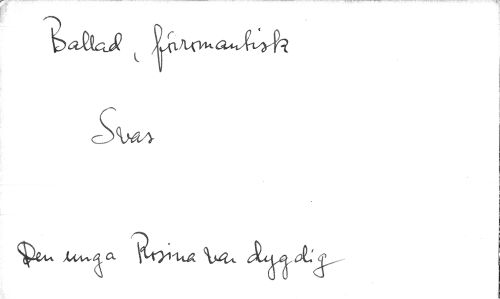 Ballad, förromantisk
Svas
Den unga Rosina var dygdig